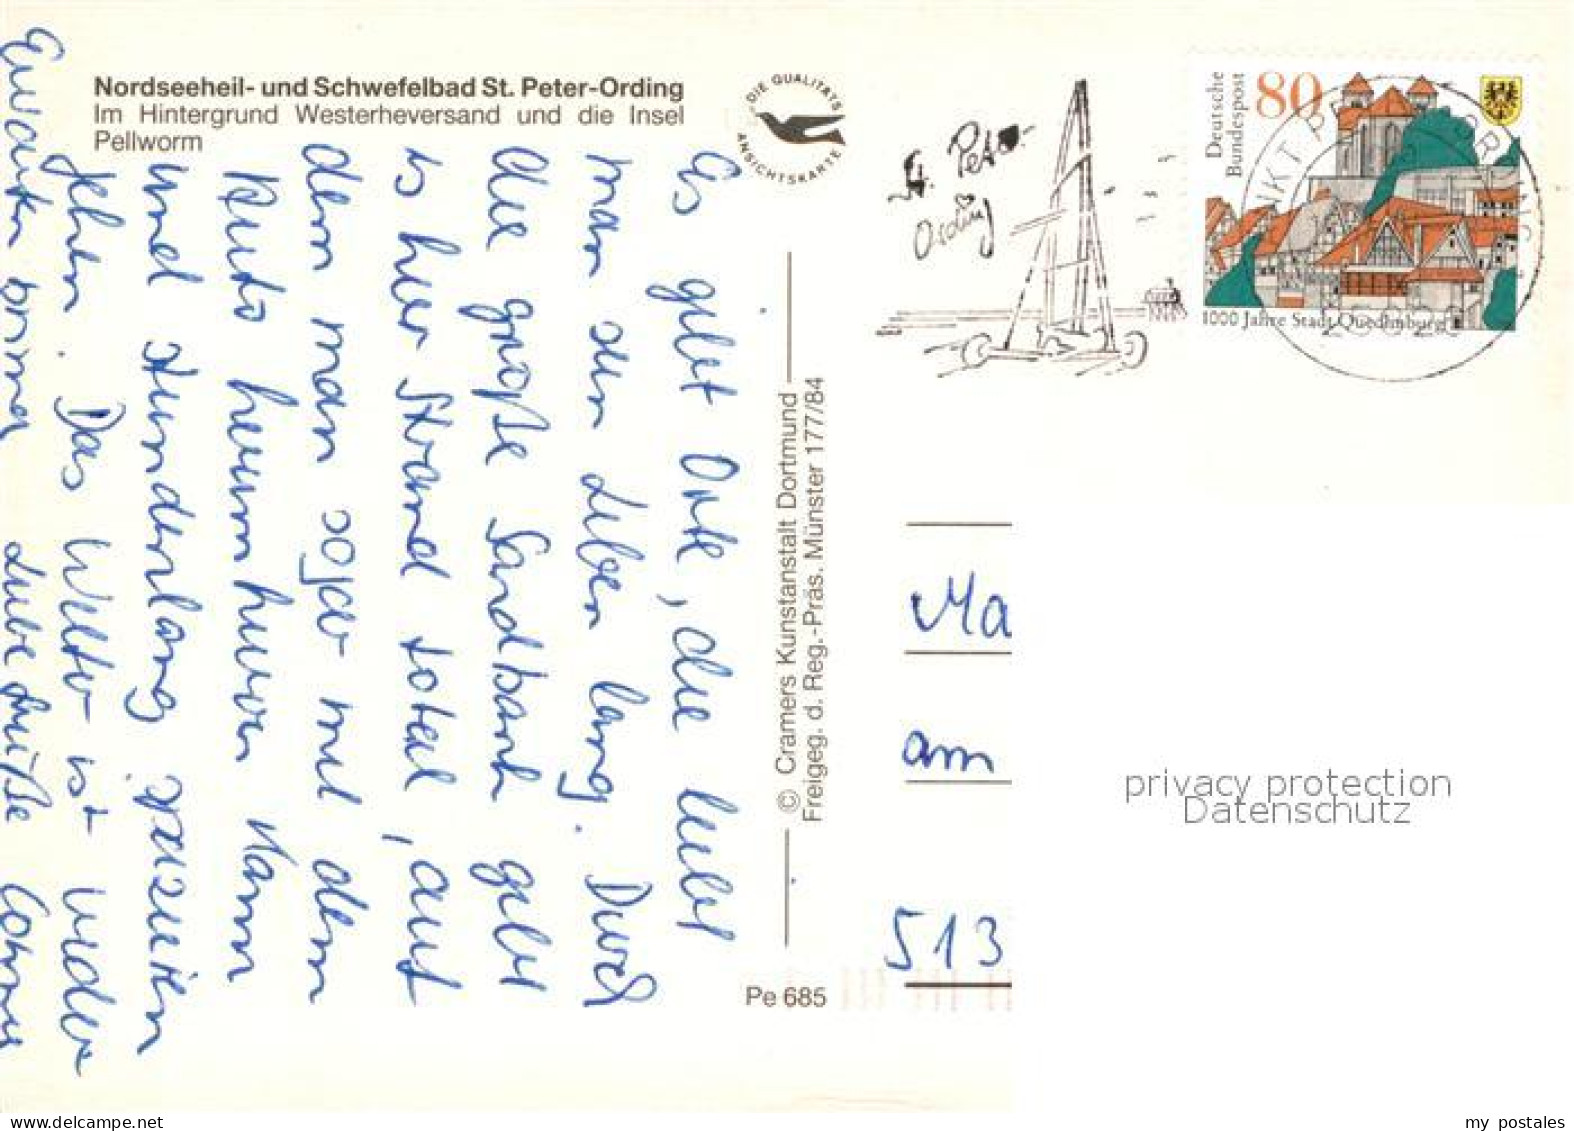 Nordseeheil- und Schwefelbad St. Peter-Ording
Im Hintergrund Westerheversand und die Insel
Pellworm
DIE QUALITÄTS
ANSICHTSKARTE
St. Peter-
Ording
Deutsche
Bundespost
80
1000 Jahre Stadt Quedlinburg
Es gibt Orte, die liebt
man sein Leben lang. Durch
die große Sandbank gibt
es hier Strand total, auf
dem man sogar mit dem
Auto herumfahren kann
und stundenlang spazieren
gehen. Das Wetter ist wieder
prima Liebe Grüße
© Cramers Kunstanstalt Dortmund
Freigeg. d. Reg.-Präs. Münster 177/84
Pe 685
Ma
am
513
privacy protection
Datenschutz
www.delcampe.net
my postales